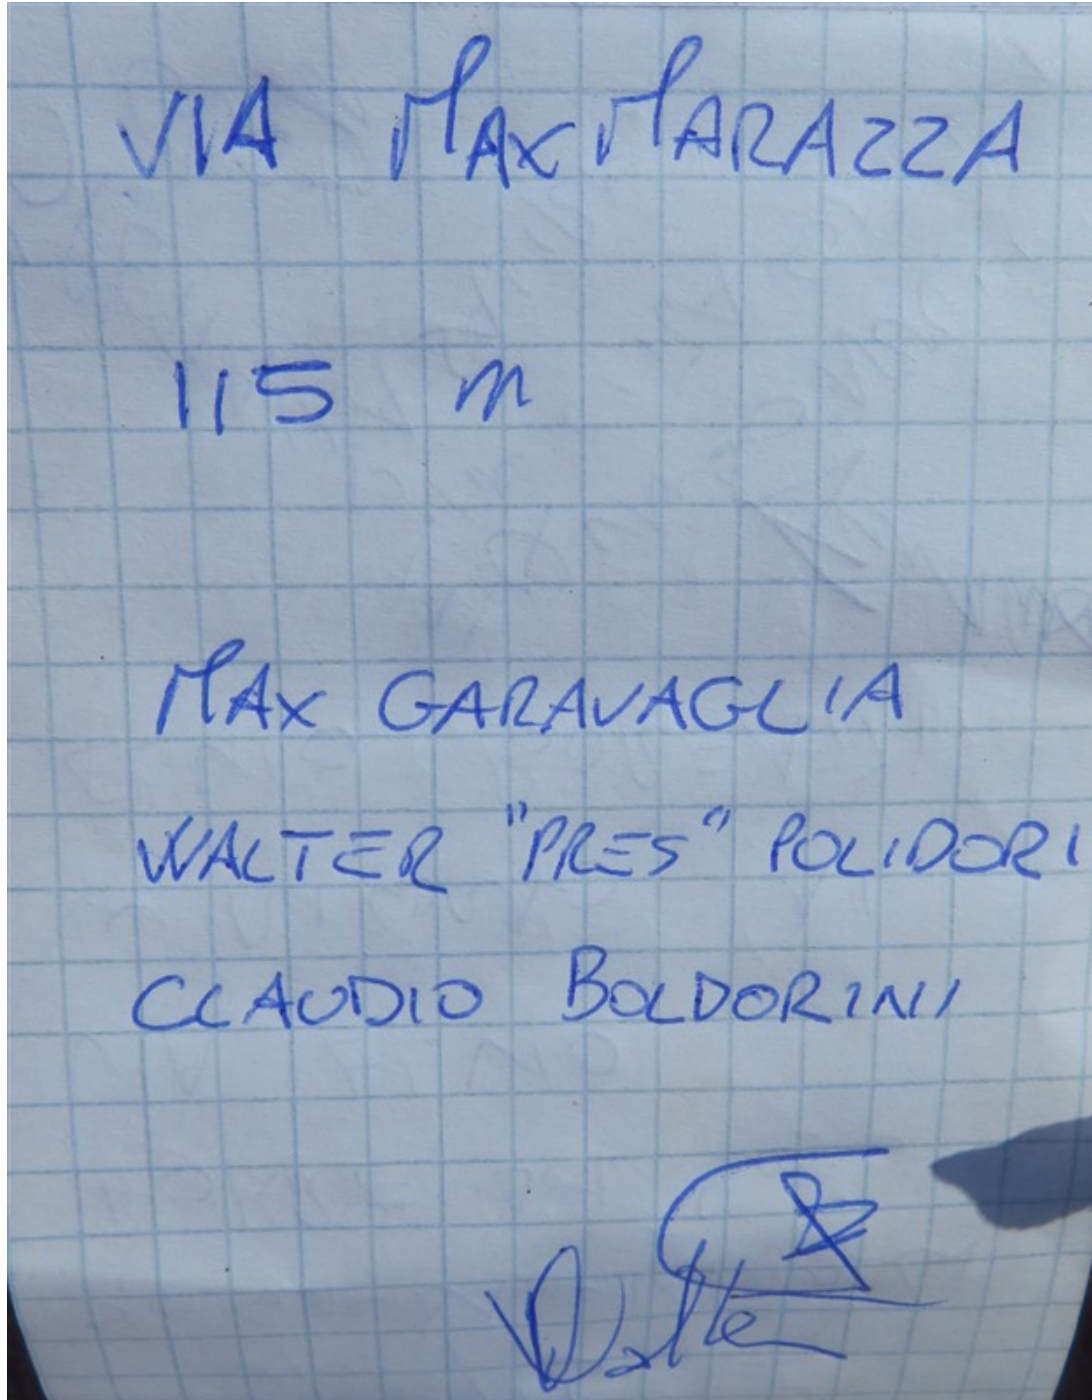 VIA MAX MARAZZA
115 m
MAX GARAVAGLIA
WALTER "PRES" POLIDORI
CLAUDIO BOLDORINI